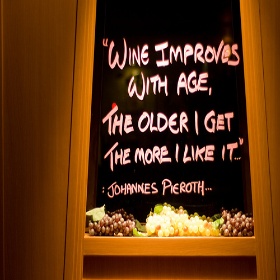 "WINE IMPROVES
WITH AGE,
THE OLDER I GET
THE MORE I LIKE IT..."
: JOHANNES PIEROTH...